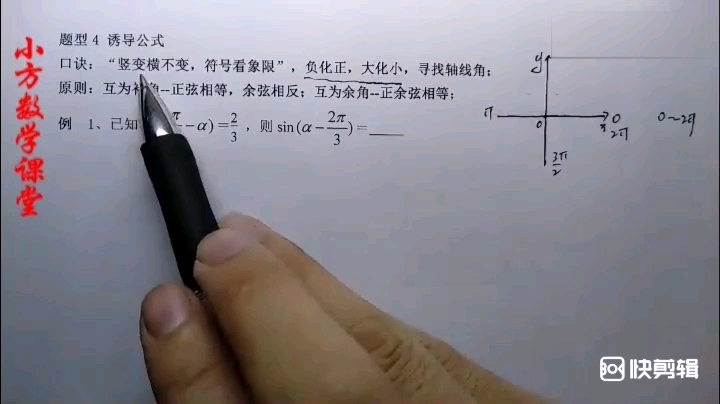 题型 4 诱导公式
口诀：“竖变横不变，符号看象限”，负化正，大化小，寻找轴线角；
原则：互为补角--正弦相等，余弦相反；互为余角--正余弦相等；
例 1、已知 π - α) = 2/3 ，则 sin(α - 2π/3) = ____
小方数学课堂
y
π 0 x 0 0~2π
2π
3π/2
快剪辑